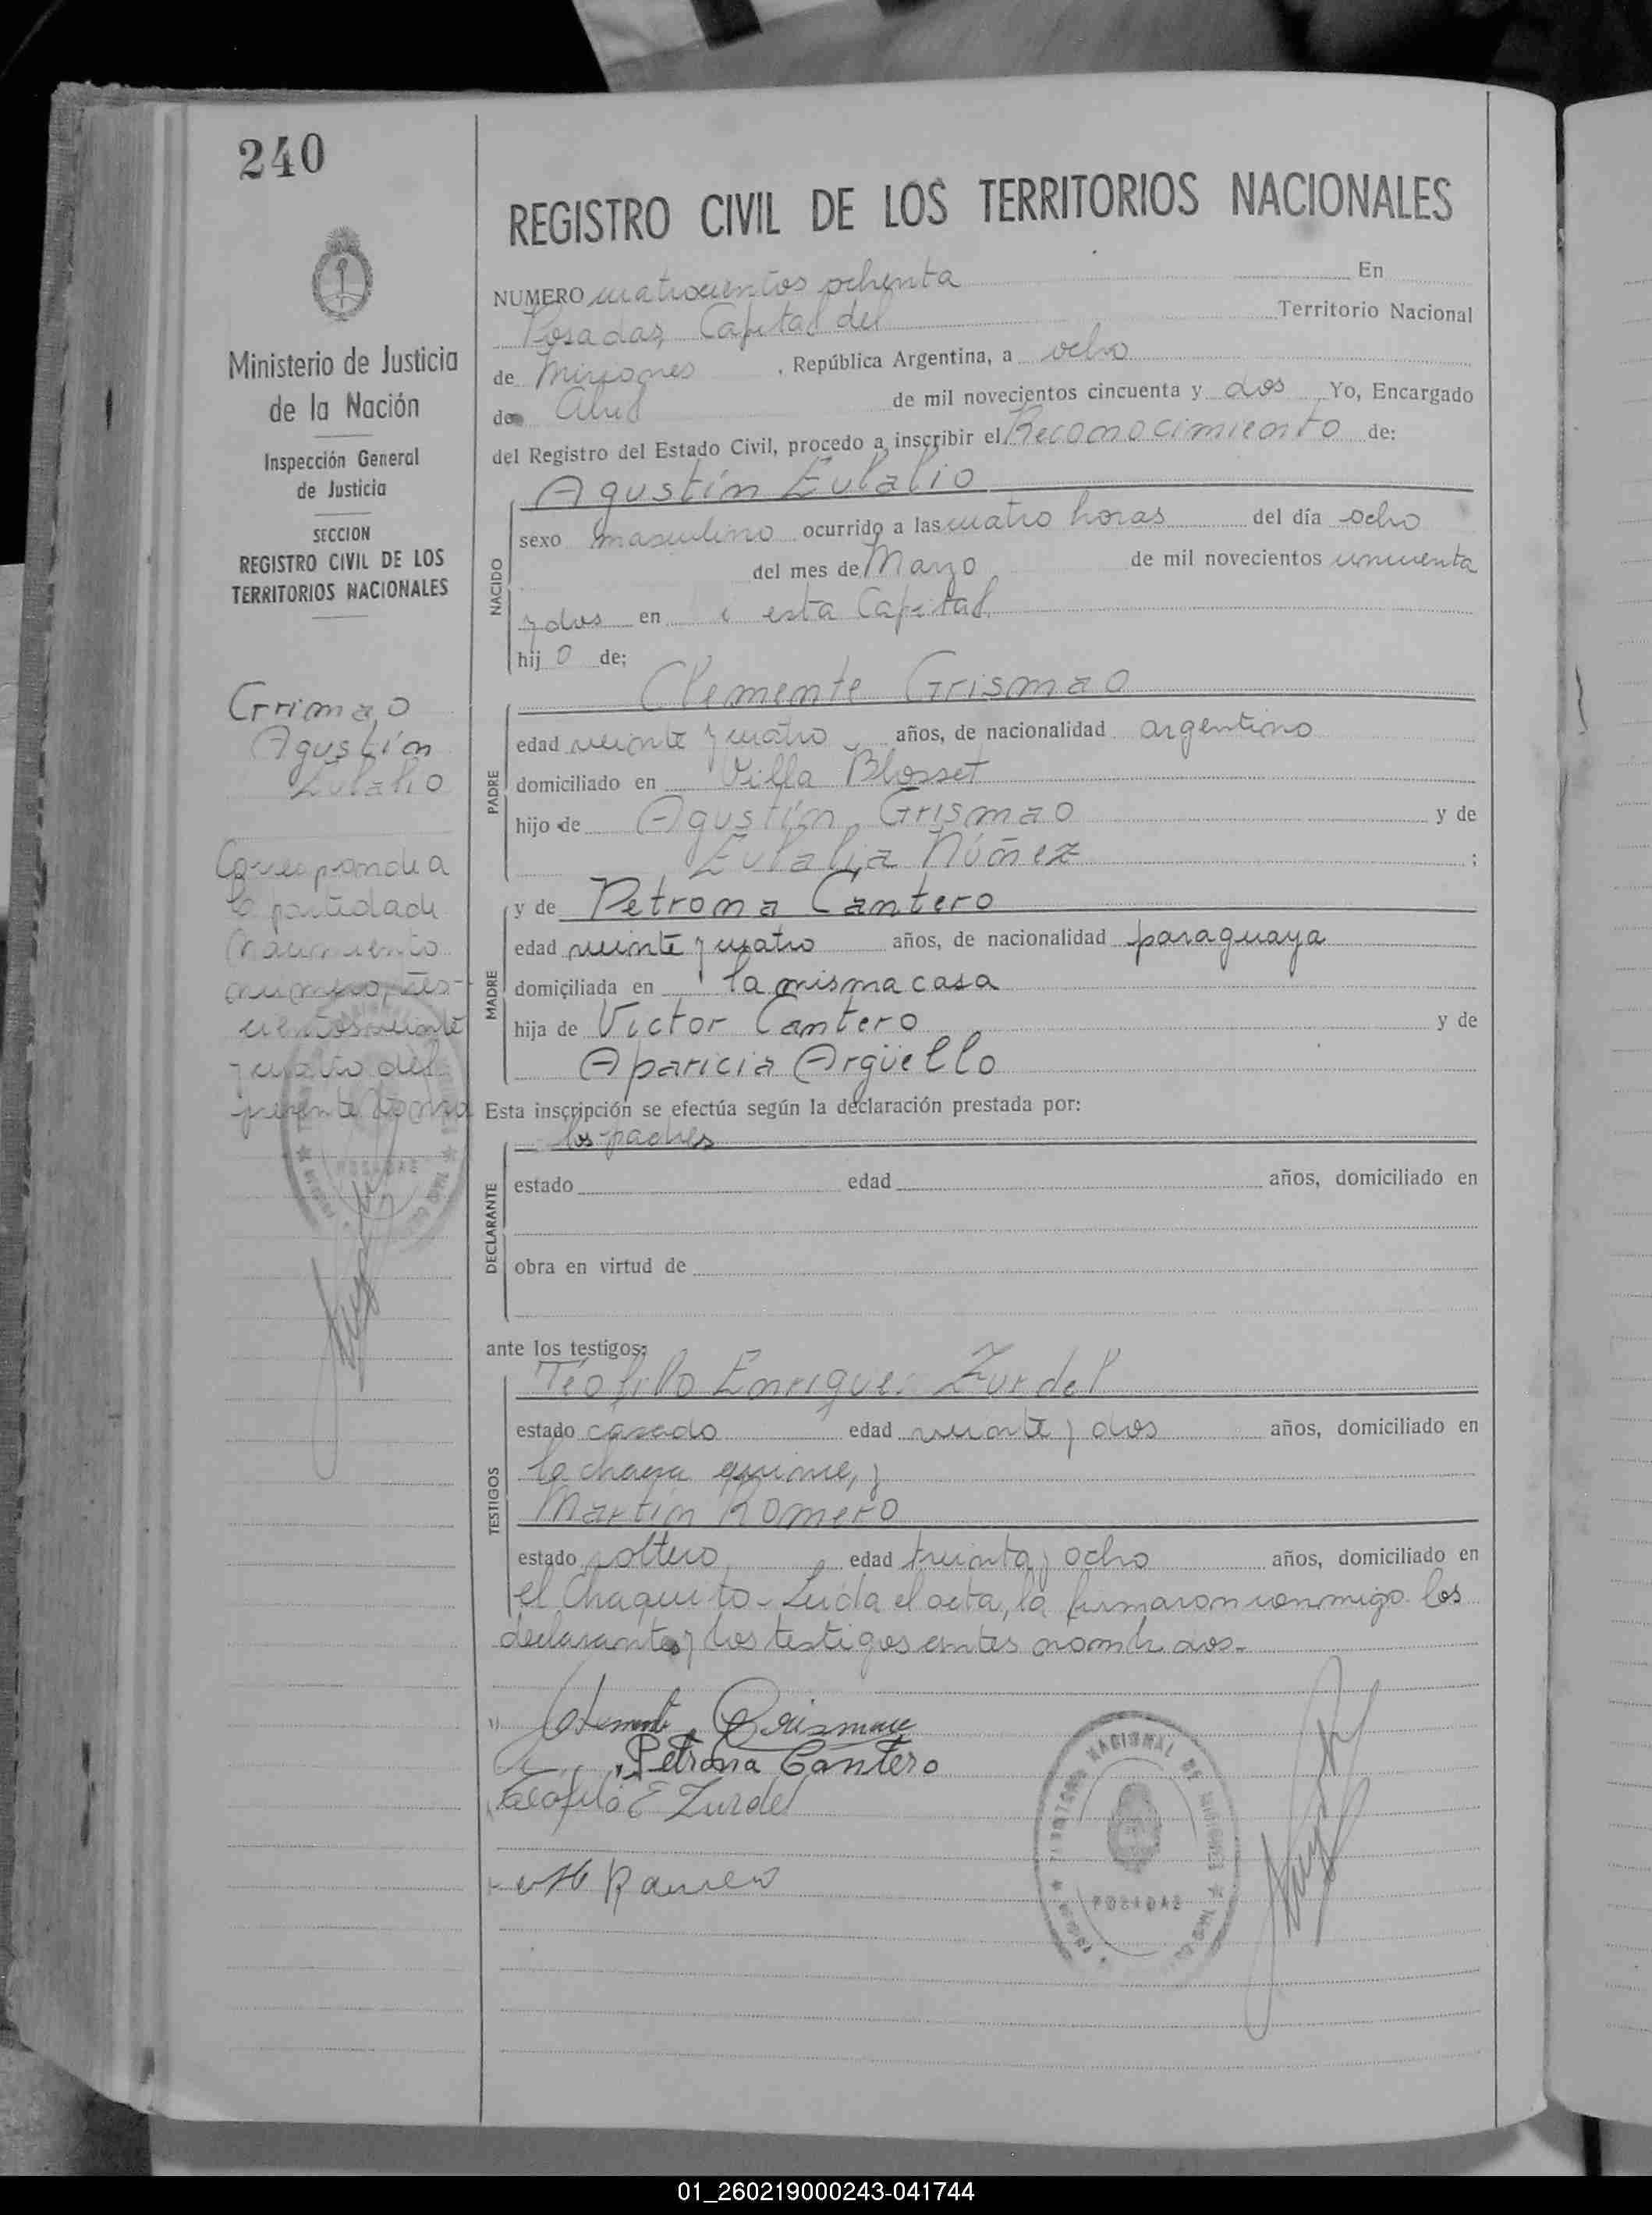 240
REGISTRO CIVIL DE LOS TERRITORIOS NACIONALES
Ministerio de Justicia
de la Nación
Inspección General
de Justicia
SECCION
REGISTRO CIVIL DE LOS
TERRITORIOS NACIONALES
Grimao
Agustín
Eulalio
Corresponde a
la partida de
nacimiento
numero tres-
cientos veinte
y cuatro del
presente tomo
NUMERO cuatrocientos ochenta En
Posadas, Capital del Territorio Nacional
de Misiones , República Argentina, a ocho
de Abril de mil novecientos cincuenta y dos Yo, Encargado
del Registro del Estado Civil, procedo a inscribir el Reconocimiento de:
NACIDO
Agustín Eulalio
sexo masculino ocurrido a las cuatro horas del día ocho
del mes de Marzo de mil novecientos cincuenta
y dos en esta Capital
hij o de;
Clemente Grismao
PADRE
edad veinte y cuatro años, de nacionalidad argentino
domiciliado en Villa Blosset
hijo de Agustín Grismao y de
Eulalia Núñez ;
MADRE
y de Petrona Cantero
edad veinte y cuatro años, de nacionalidad paraguaya
domiciliada en la misma casa
hija de Victor Cantero y de
Aparicia Argüello
Esta inscripción se efectúa según la declaración prestada por:
DECLARANTE
los padres
estado edad años, domiciliado en
obra en virtud de
ante los testigos:
TESTIGOS
Teófilo Enrique Zurdel
estado casado edad veinte y dos años, domiciliado en
la chacra quince, y
Martín Romero
estado soltero edad treinta y ocho años, domiciliado en
el Chaquito - Leída el acta, la firmaron conmigo los
declarantes y los testigos antes nombrados.-
Clemente Grismao
Petrona Cantero
Teofilo E Zurdel
Romero
NACIONAL DE MISIONES
POSADAS
01_260219000243-041744